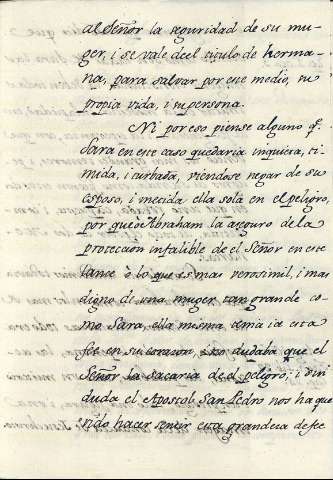 al Señor la seguridad de su mu-
ger, i se vale de el titulo de herma-
na, para salvar por ese medio, su
propia vida, i su persona.
Ni por eso piense alguno q.
Sara en este caso quedaria inquieta, ti-
mida, i turbada, viendose negar de su
esposo, i metida ella sola en el peligro,
por que o Abraham la aseguro de la
proteccion infalible de el Señor en este
lance o lo que es mas verosimil, i mas
digno de una muger tan grande co-
mo Sara, ella misma tenia ia esta
fee en su corazon, i no dudaba que el
Señor la sacaria de el peligro; i sin
duda el Apostol San Pedro nos ha que-
rido hacer sentir esta grandeza de fee